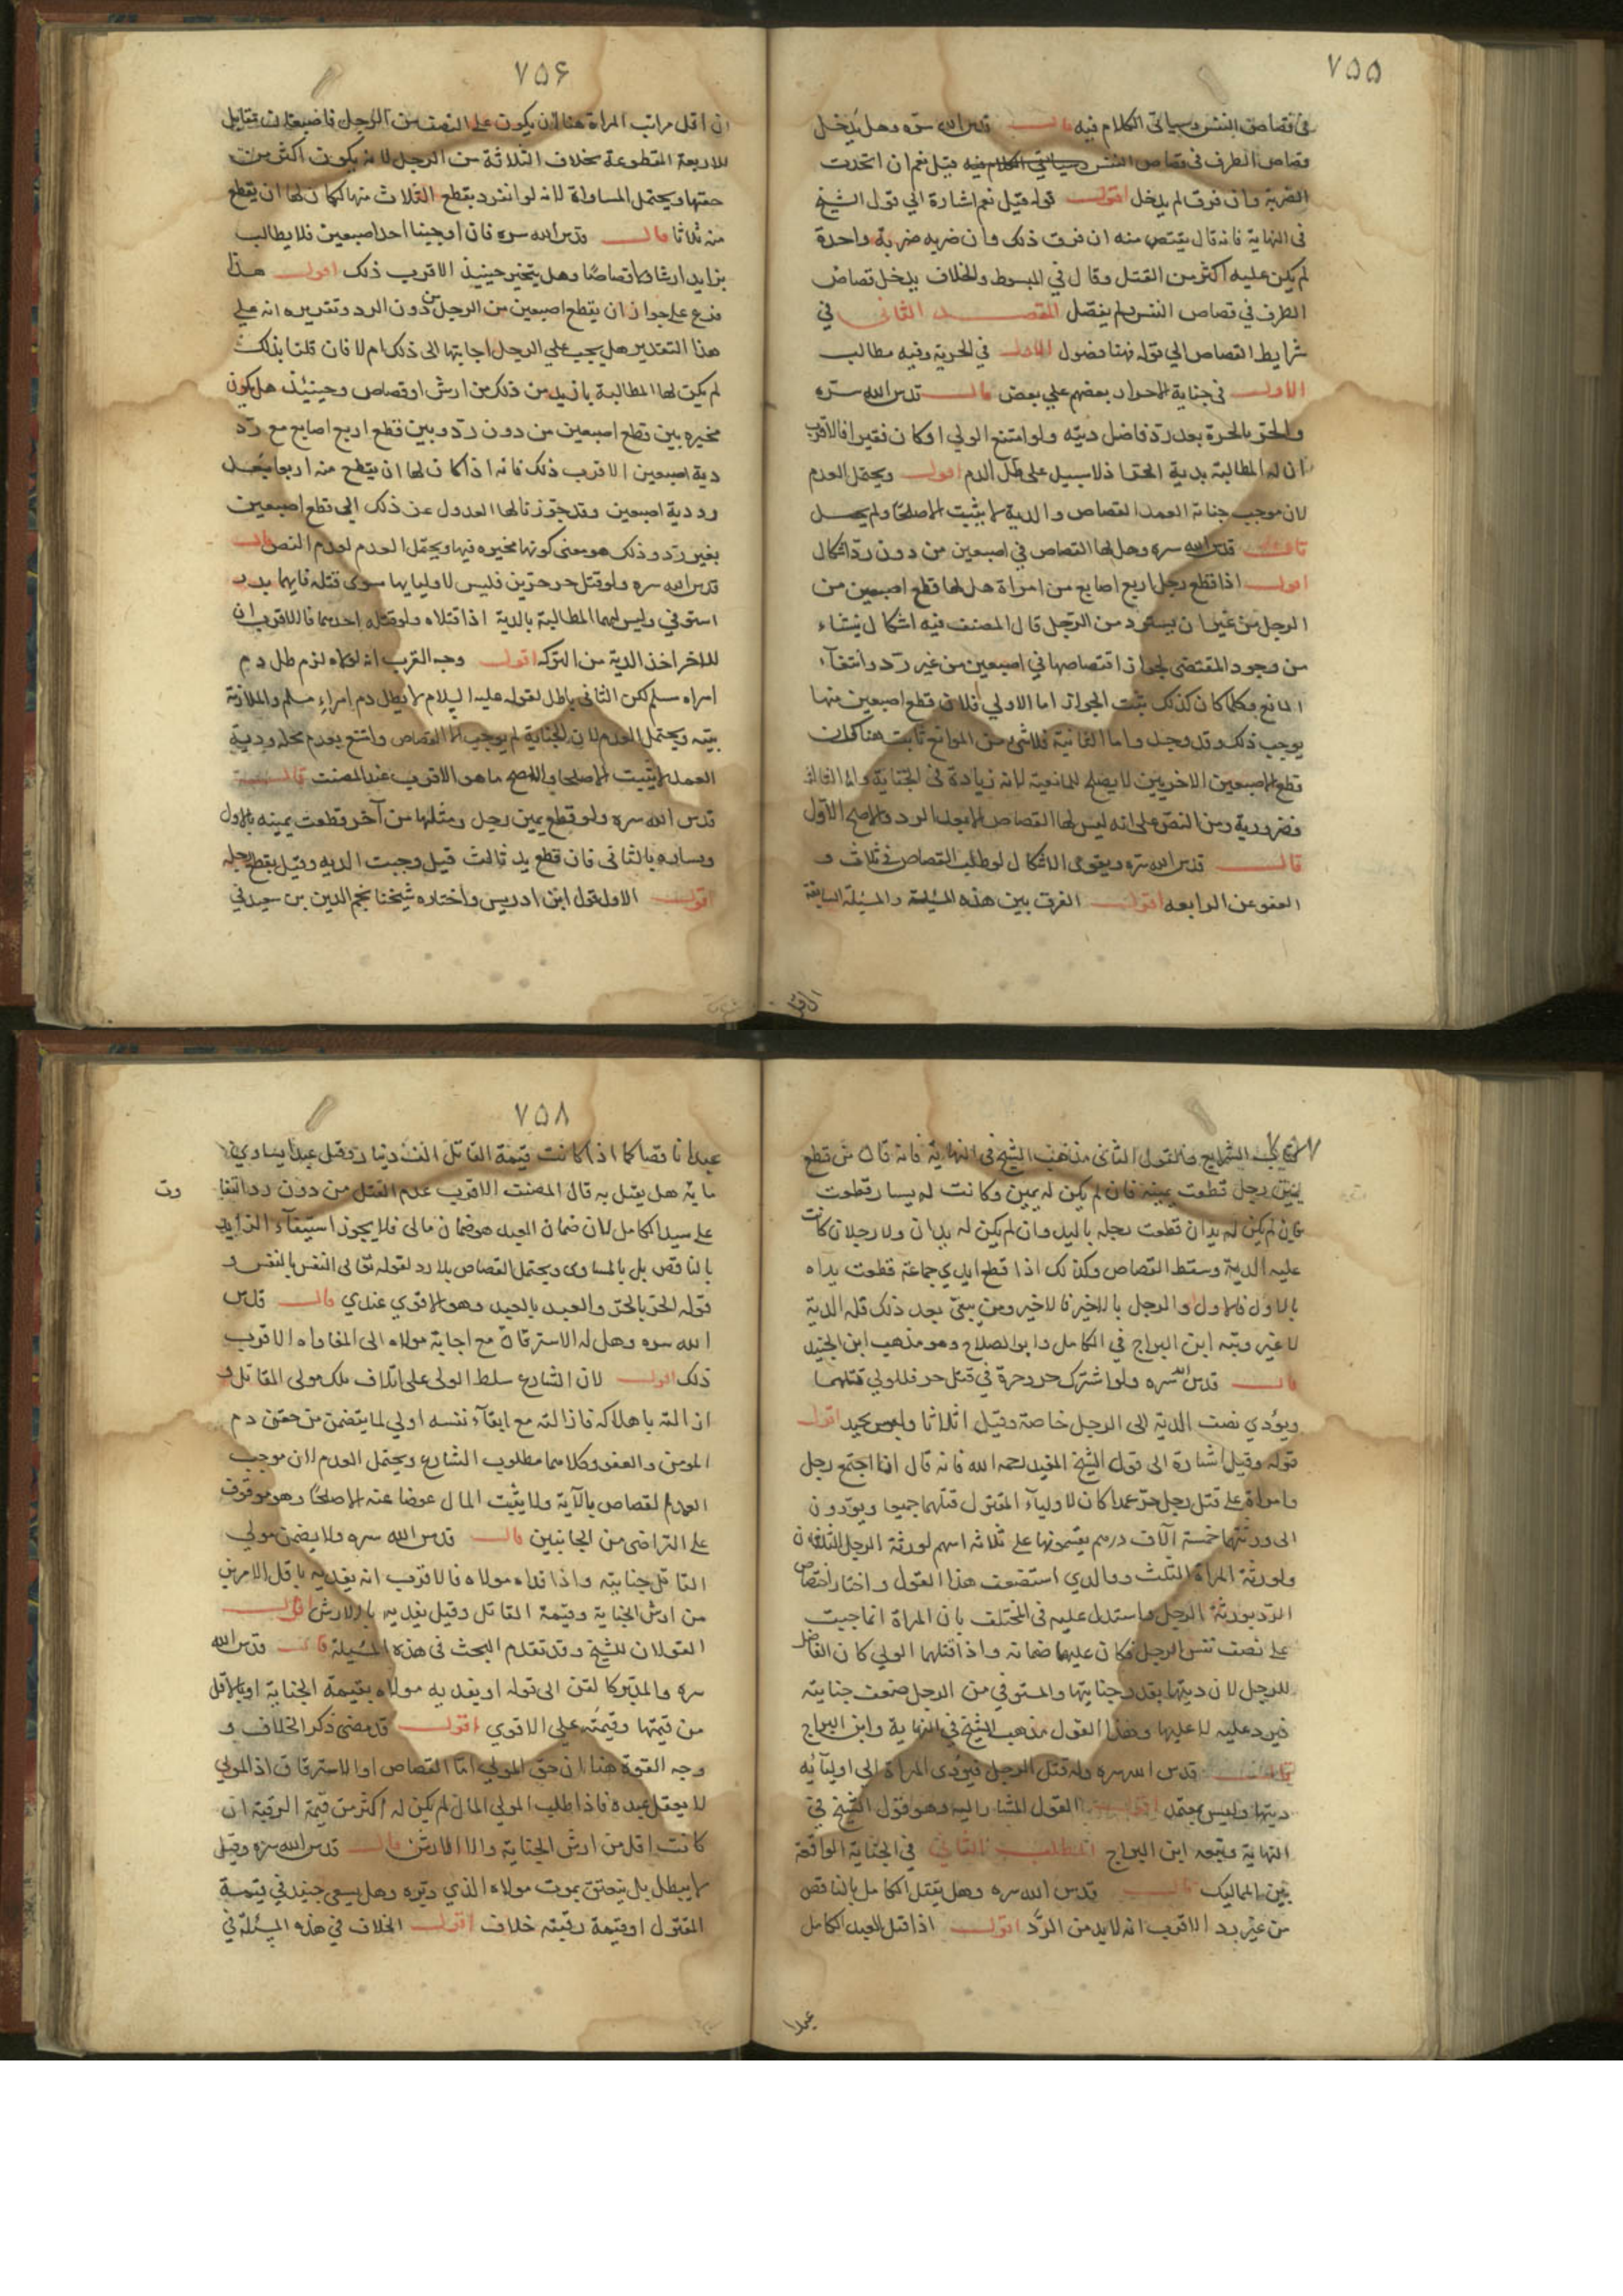 ٧٥٥
في قصاص النفس وسياتي الكلام فيه قال قدس الله سره وهل يدخل
قصاص الطرف في قصاص النفس وسياتي الكلام فيه قيل نعم ان اتحدت
الضربة وان فرق لم يدخل اقول قوله قيل نعم اشارة الي قول الشيخ
في النهاية فانه قال يقتص منه ان فرق ذلك وان ضربه ضربة واحدة
لم يكن عليه اكثر من القتل وقال في المبسوط والخلاف يدخل قصاص
الطرف في قصاص النفس ولم يفصل المقصد الثاني في
شرايط القصاص الي قوله فهنا فصول الاول في الحرية وفيه مطالب
الاول في جناية الاحرار بعضهم علي بعض قال قدس الله سره
والحر بالحرة بعد رد فاضل ديته ولو امتنع الولي او كان فقيرا فالاقرب
ان له المطالبة بدية الحر اذ لا سبيل على طل الدم اقول ويحتمل العدم
لان موجب جناية العمد القصاص والدية لا يثبت الا صلحا ولم يحصل
قال قدس الله سره وهل لها القصاص في اصبعين من دون رد اشكال
اقول اذا قطع رجل اربع اصابع من امراة هل لها قطع اصبعين من
الرجل من غير ان يسترد من الرجل قال المصنف فيه اشكال ينشاء
من وجود المقتضى لجواز اقتصاصها في اصبعين من غير رد وانتفاء
المانع وكلما كان كذلك يثبت الجواز اما الاولي فلان قطع اصبعين منها
يوجب ذلك وقد وجد واما الثانية فلا شيء من الموانع ثابت هنا
قطع الاصبعين الاخريين لا يصلح للمانعية لانه زيادة في الجناية واما الثالثة
فضرورية ومن النص على انه ليس لها القصاص الا بعد الرد والاصح الاول
قال قدس الله سره ويقوى الاشكال لو طلب القصاص في ثلاث و
العفو عن الرابعه اقول الفرق بين هذه المسئلة والمسئلة السابقة
٧٥۶
ان اقل مراتب المراة هنا ان يكون على النصف من الرجل فاصبعان تقابل
للاربعة المقطوعة بخلاف الثلاثة من الرجل لانه يكون اكثر من
حقها ويحتمل المساواة لانه لو انفرد بقطع الثلاث منها لكان لها ان يقطع
منه ثلاثا قال قدس الله سره فان اوجبنا احد اصبعين فلا يطالب
بزايد ارشا ولا قصاصا وهل يتخير حينيذ الاقرب ذلك اقول هذا
فرع على جواز ان يقطع اصبعين من الرجل من دون الرد وتقريره انه علي
هذا التقدير هل يجب علي الرجل اجابتها الى ذلك ام لا فان قلنا بذلك
لم يكن لها المطالبة بازيد من ذلك من ارش او قصاص وحينيذ هل يكون
مخيره بين قطع اصبعين من دون رد وبين قطع اربع اصابع مع رد
دية اصبعين الاقرب ذلك فانه اذا كان لها ان يقطع منه اربعا بعد
رد دية اصبعين وقد جوزنا لها العدول عن ذلك الي قطع اصبعين
بغير رد وذلك هو معنى كونها مخيره فيها ويحتمل العدم لعدم النص قال
قدس الله سره ولو قتل حر حرين فليس لاوليايهما سوى قتله فايهما بدر
استوفي وليس لهما المطالبة بالدية اذا قتلاه ولو قتله احدهما فالاقرب ان
للاخر اخذ الدية من التركه اقول وجه القرب انه لولاه لزم طل دم
امراء مسلم لكن الثاني باطل لقوله عليه السلام لا يطل دم امراء مسلم والملازمة
بينه ويحتمل العدم لان الجناية لم يوجب الا القصاص وامتنع بعدم محله ودية
العمد لا يثبت الا صلحا والاصح ما هو الاقرب عند المصنف قال
قدس الله سره ولو قطع يمين رجل ومثلها من آخر قطعت يمينه بالاول
ويساره بالثاني فان قطع يد ثالث قيل وجبت الديه وقيل يقطع رجله
اقول الاول قول ابن ادريس واختاره شيخنا نجم الدين بن سعيد في
الاقر
٧٥٧
كتاب الشرايع والقول الثاني مذهب الشيخ في النهاية فانه قال من قطع
يمين رجل قطعت يمينه فان لم يكن له يمين وكانت له يسار قطعت
فان لم يكن له يدان قطعت رجله باليد وان لم يكن له يدان ولا رجلان كانت
عليه الدية وسقط القصاص وكذلك اذا قطع ايدي جماعة قطعت يداه
بالاول فالاول والرجل بالاخير فالاخير ومن يبقى بعد ذلك فله الدية
لا غير وتبعه ابن البراج في الكامل وابو الصلاح وهو مذهب ابن الجنيد
قال قدس الله سره ولو اشترك حر وحرة في قتل حر فللولي قتلهما
ويؤدي نصف الدية الى الرجل خاصة وقيل اثلاثا وليس بجيد اقول
قوله وقيل اشارة الى قول الشيخ المفيد رحمه الله فانه قال اذا اجتمع رجل
وامراة على قتل رجل حر عمدا كان لاولياء المقتول قتلهما جميعا ويؤدون
الى ورثتهما خمسة آلاف درهم يقتسمونها على ثلاثه اسهم لورثة الرجل الثلثان
ولورثة المراة الثلث ووالدي استضعف هذا القول واختار اختصاص
الرد بورثة الرجل واستدل عليه في المختلف بان المراة انما جنت
على نصف نفس الرجل فكان عليها ضمانه واذا قتلهما الولي كان الفاضل
للرجل لان ديتها بقدر جنايتها والمستوفي من الرجل ضعف جنايته
فيرد عليه لا عليها وهذا القول مذهب الشيخ في النهاية وابن البراج
قال قدس الله سره وله قتل الرجل فيؤدى المراة الى اوليآئه
ديتها وليس بمعتمد اقول القول المشار اليه وهو قول الشيخ في
النهاية وتبعه ابن البراج المطلب الثاني في الجناية الواقعة
بين المماليك قال قدس الله سره وهل يقتل الكامل بالناقص
من غير رد الاقرب انه لا بد من الرد اقول اذا قتل العبد الكامل
عبدا
٧٥٨
عبدا ناقصا كما اذا كانت قيمة القاتل الف دينار وقتل عبدا يساوي
ماية هل يقتل به قال المصنف الاقرب عدم القتل من دون رد
على سيد الكامل لان ضمان العبد هو ضمان مالي فلا يجوز استيفاء الزايد
بالناقص بل بالمساوى ويحتمل القصاص بلا رد لقوله تعالى النفس بالنفس و
قوله الحر بالحر والعبد بالعبد وهو الاقوي عندي قال قدس
الله سره وهل له الاسترقاق مع اجابة مولاه الى المفاداه الاقرب
ذلك اقول لان الشارع سلط الولى على اتلاف ملك مولى القاتل و
ازالته باهلاكه فازالته مع ابقآء نفسه اولي لما يتضمن من حقن دم
المومن والعفو وكلاهما مطلوب الشارع ويحتمل العدم لان موجب
العمد القصاص بالآية ولا يثبت المال عوضا عنه الا صلحا وهو موقوف
على التراضى من الجانبين قال قدس الله سره ولا يضمن مولي
القاتل جنايته واذا فداه مولاه فالاقرب انه يفديه باقل الامرين
من ارش الجناية وقيمة القاتل وقيل يفديه بالارش اقول
القولان للشيخ وقد تقدم البحث في هذه المسيلة قال قدس الله
سره والمدبر كالقن الى قوله او يفديه مولاه بقيمة الجناية او بالاقل
من قيمتها وقيمته علي الاقوي اقول قد مضى ذكر الخلاف و
وجه القوة هنا ان حق المولي اما القصاص او الاسترقاق اذ المولي
لا يعقل عبده فاذا طلب المولي المال لم يكن له اكثر من قيمة الرقبة ان
كانت اقل من ارش الجناية والا الارش قال قدس الله سره وقيل
لا يبطل بل ينعتق بموت مولاه الذي دبره وهل يسعى حينيذ في قيمة
المقتول او قيمة رقبته خلاف اقول الخلاف في هذه المسئلة في